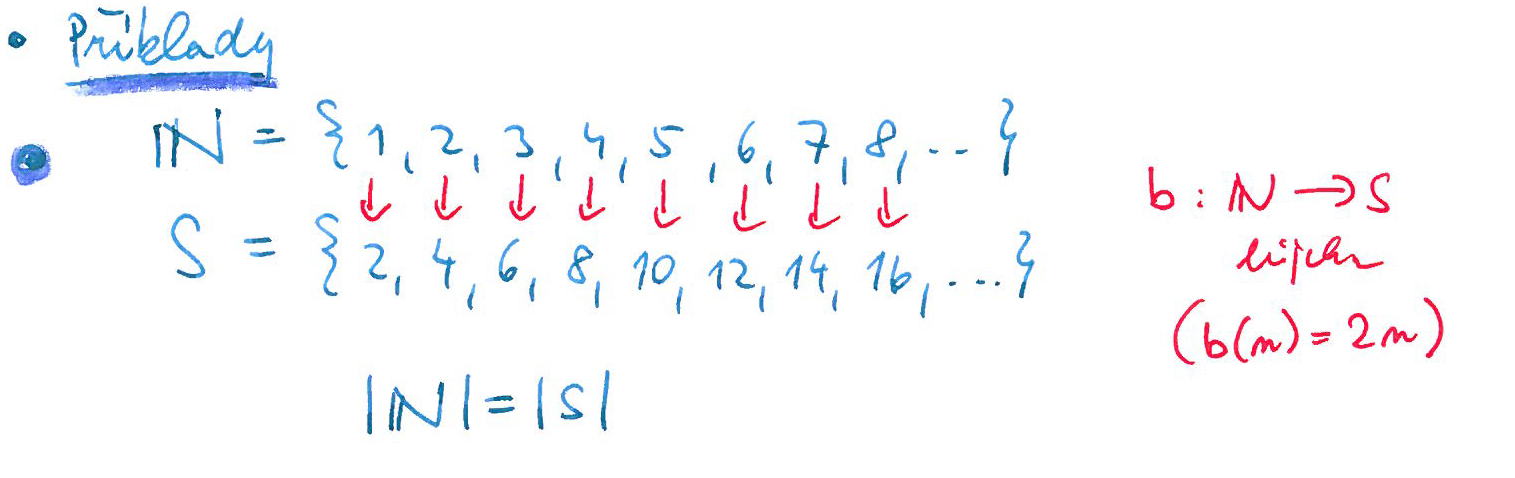 • Příklady
• ℕ = {1, 2, 3, 4, 5, 6, 7, 8, ...}
↓ ↓ ↓ ↓ ↓ ↓ ↓ ↓
S = {2, 4, 6, 8, 10, 12, 14, 16, ...}
|ℕ| = |S|
b : ℕ → S
bijekce
(b(n) = 2n)